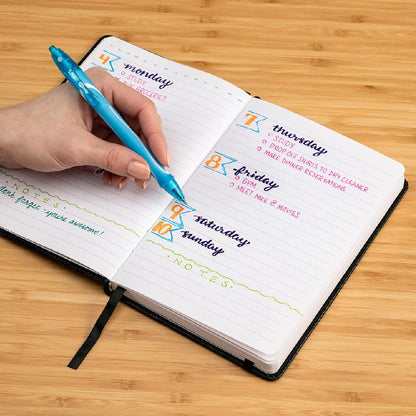 4
monday
GROCERIES
NOTES
don't forget - you're awesome!
7
thursday
STUDY
DROP OFF SHIRTS TO DRY CLEANER
MAKE DINNER RESERVATIONS
8
friday
GYM
MEET MIKE @ MOVIES
9
saturday
10
sunday
NOTES